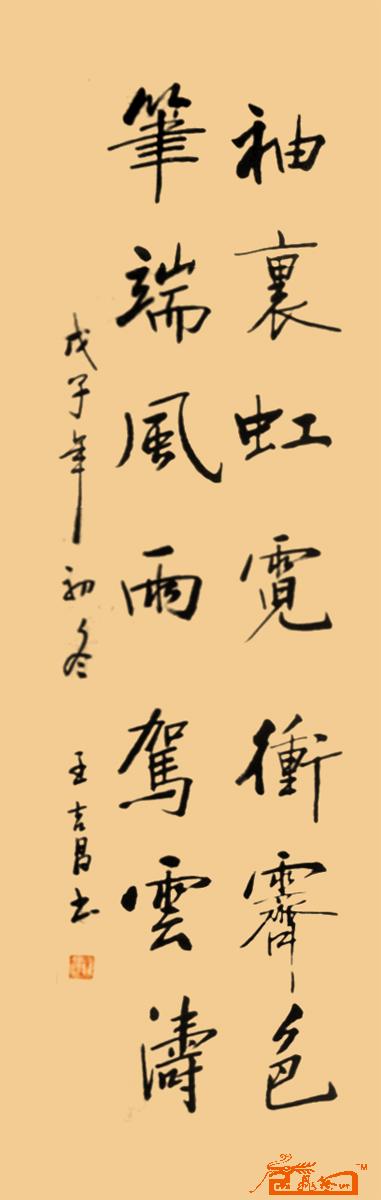 袖裏虹霓衝霽色
筆端風雨駕雲濤
戊子年初冬 王吉昌书